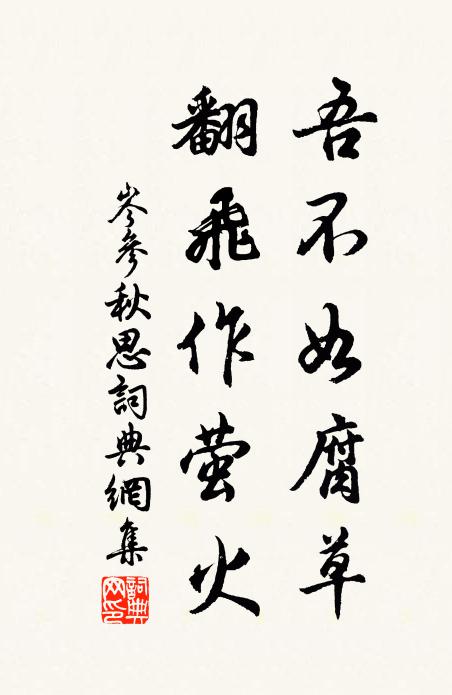 吾不如腐草
翻飛作萤火
岑參秋思詞典網集
詞典网印